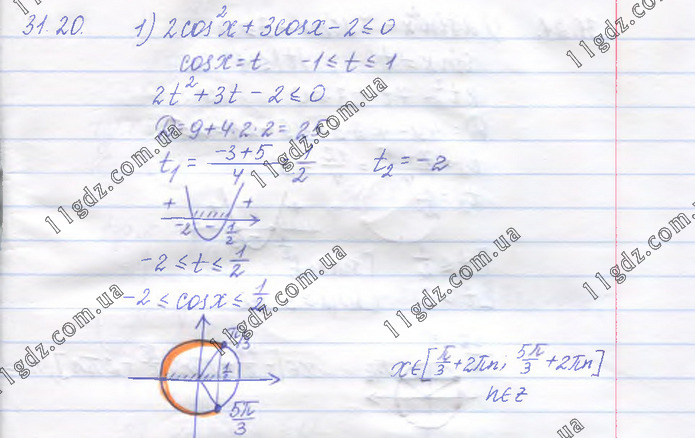 31.20. 1) 2cos²x + 3cosx - 2 ≤ 0
cosx = t   -1 ≤ t ≤ 1
2t² + 3t - 2 ≤ 0
D = 9 + 4·2·2 = 25
t₁ = (-3+5)/4 = 1/2   t₂ = -2
+ - +
-2   1/2
-2 ≤ t ≤ 1/2
-2 ≤ cosx ≤ 1/2
π/3
1/2
x∈[π/3 + 2πn; 5π/3 + 2πn]
n∈z
5π/3
11gdz.com.ua
11gdz.com.ua
11gdz.com.ua
11gdz.com.ua
11gdz.com.ua
11gdz.com.ua
11gdz.com.ua
11gdz.com.ua